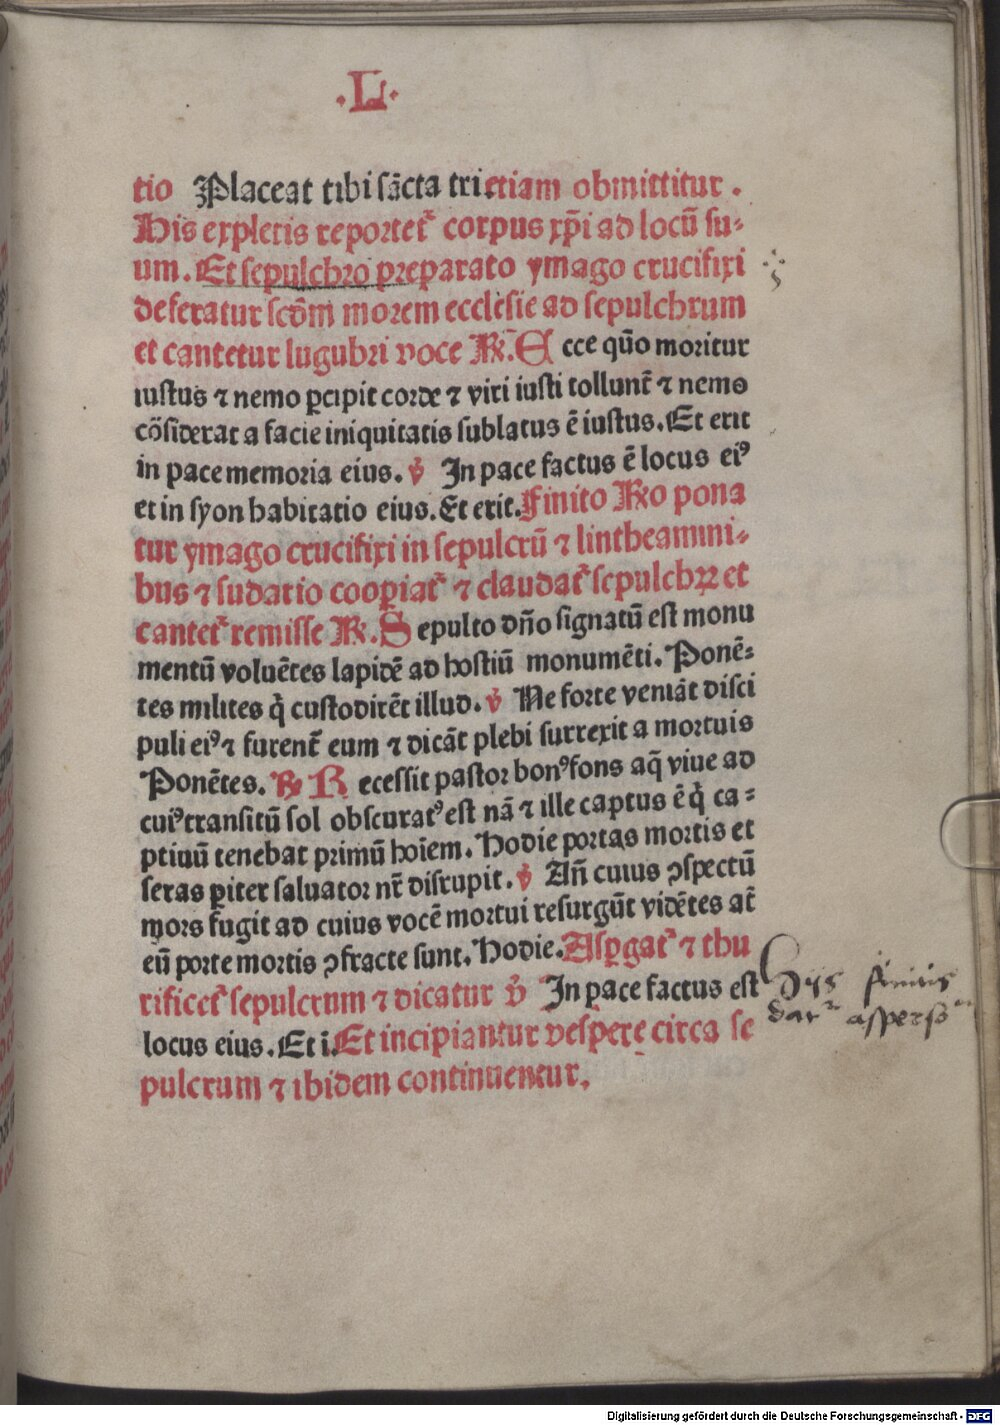 ·L·
tio Placeat tibi sācta tri etiam obmittitur.
His expletis reportet᷑ corpus xp̄i ad locū su⸗
um. Et sepulchro preparato ymago crucifixi
deferatur scd̄m morem ecclesie ad sepulchrum
et cantetur lugubri voce R̄. Ecce quō moritur
iustus ⁊ nemo ꝑcipit corde ⁊ viri iusti tollunt᷑ ⁊ nemo
cōsiderat a facie iniquitatis sublatus ē iustus. Et erit
in pace memoria eius. ℣ In pace factus ē locus eiꝰ
et in syon habitatio eius. Et erit. Finito R̄o pona
tur ymago crucifixi in sepulcrū ⁊ lintheamini⸗
bus ⁊ sudario cooꝑiat᷑ ⁊ claudat᷑ sepulchꝝ et
cantet᷑ remisse R̄. Sepulto dn̄o signatū est monu
mentū voluētes lapidē ad hostiū monumēti. Ponē⸗
tes milites q̇ custodirēt illud. ℣ Ne forte veniāt disci
puli eiꝰ ⁊ furent᷑ eum ⁊ dicāt plebi surrexit a mortuis
Ponētes. ℟ Recessit pastor bonꝰ fons aq̄ viue ad
cuiꝰ transitū sol obscuratꝰ est nā ⁊ ille captus ē q̇ ca⸗
ptiuū tenebat primū hoīem. Hodie portas mortis et
seras ꝑiter saluator nr̄ disrupit. ℣ An̄ cuius ꝯspectū
mors fugit ad cuius vocē mortui resurgūt vidētes at᷑
eū porte mortis ꝯfracte sunt. Hodie. Asꝑgat᷑ ⁊ thu
rificet᷑ sepulcrum ⁊ dicatur ℣ In pace factus est
locus eius. Et ī. Et incipiantur vespere circa se
pulcrum ⁊ ibidem continuentur.
Hys finitis
dat᷑ aspers
Digitalisierung gefördert durch die Deutsche Forschungsgemeinschaft - DFG